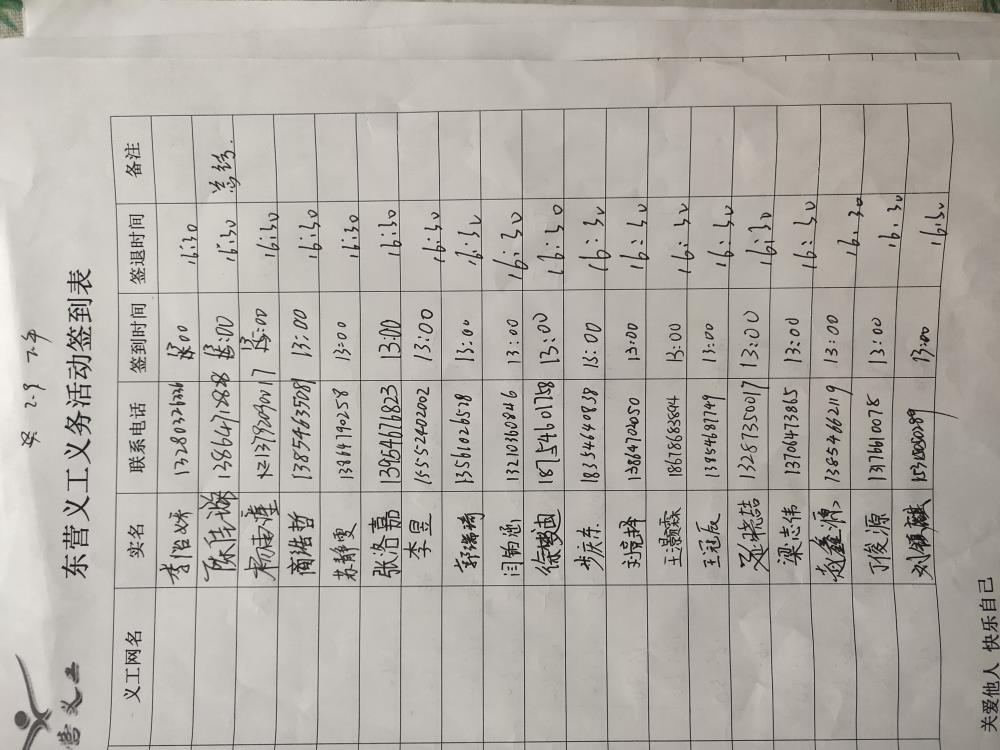 2.9 下午
东营义工义务活动签到表
营义工
义工网名 实名 联系电话 签到时间 签退时间 备注
13:00 16:30
13:00 16:30
杨 13:00 16:30
商浩哲 13854635081 13:00 16:30
苏静雯 13964790258 13:00 16:30
张洛嘉 13954676823 13:00 16:30
李昱 15552402002 13:00 16:30
郭瑞琦 13561026578 13:00 16:30
闫钧涵 13210360846 13:00 16:30
徐 18754601758 13:00 16:30
步庆东 18354640838 15:00 16:30
13864702050 13:00 16:30
王灏霖 18678683894 13:00 16:30
王冠辰 13854687749 13:00 16:30
13287350017 13:00 16:30
梁志伟 13706473865 13:00 16:30
赵鑫源 13854662119 13:00 16:30
丁俊源 13176610078 13:00 16:30
刘镇麒 13:00 16:30
关爱他人 快乐自己